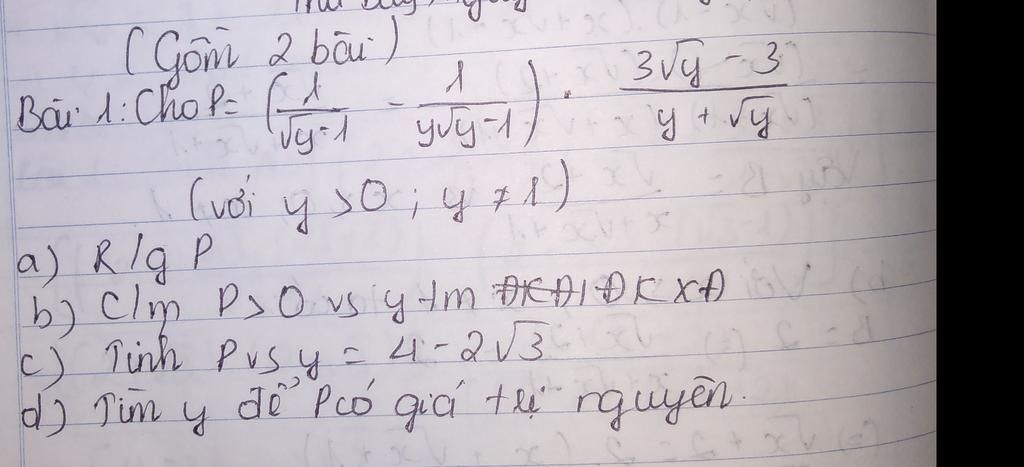 (Gồm 2 bài)
Bài 1: Cho P = (1/(√y-1) - 1/(y√y-1)) . (3√y - 3)/(y + √y)
(với y > 0 ; y ≠ 1)
a) R/g P
b) C/m P > 0 vs y t/m ĐKXĐ
c) Tính P vs y = 4 - 2√3
d) Tìm y để P có giá trị nguyên.